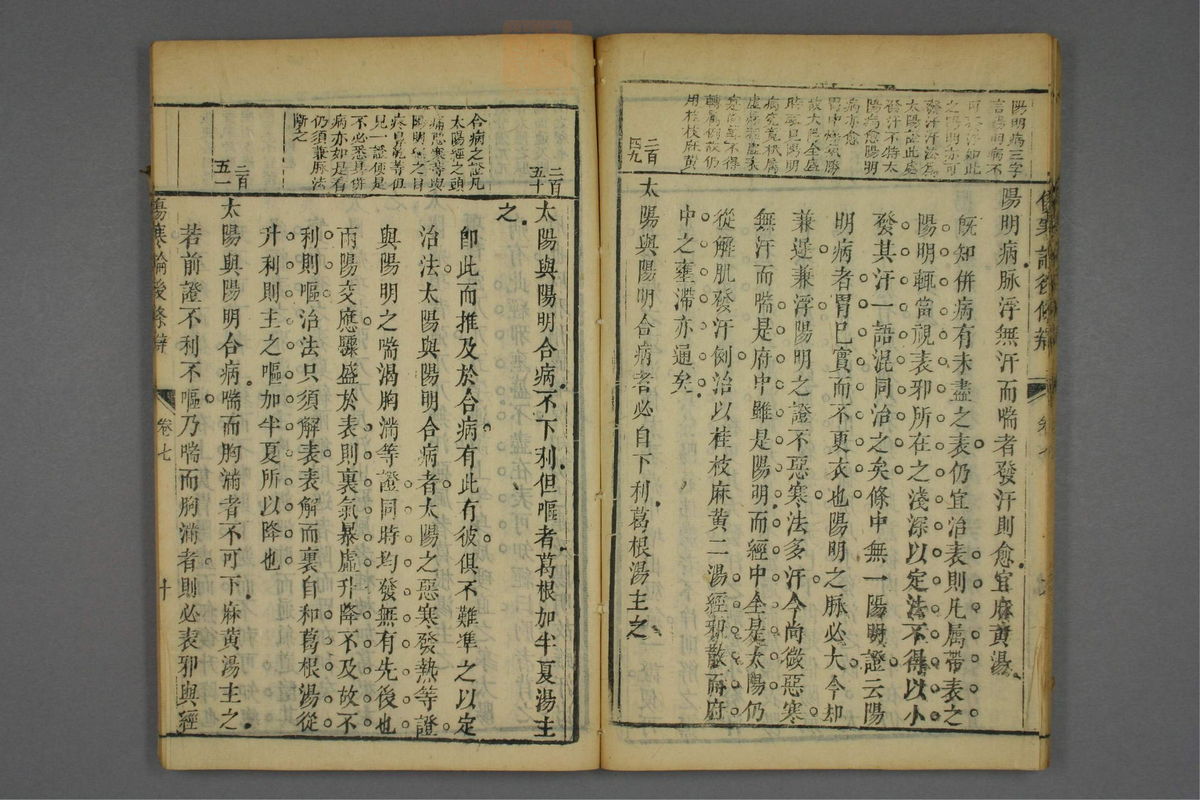 陽明病三字
傷寒論後條辨
卷七
陽明病脉浮無汗而喘者發汗則愈宜麻黃湯
旣知併病有未盡之表仍宜治表則凡属帶表之
陽明輒當視表邪所在之淺深以定法不得以小
發其汗一語混同治之矣條中無一陽明證云陽
明病者胃已實而不更衣也陽明之脉必大今却
兼遲兼浮陽明之證不惡寒法多汗今尚微惡寒
無汗而喘是府中雖是陽明而經中全是太陽仍
從解肌發汗例治以桂枝麻黃二湯經邪散而府
中之壅滯亦通矣
二百四九
太陽與陽明合病者必自下利葛根湯主之
合病之證凡
太陽經之頭
痛惡寒等與
陽明經之目
疼鼻乾等但
見一證便是
不必悉具併
病亦如是看
仍須兼脈法
斷之
二百五十
太陽與陽明合病不下利但嘔者葛根加半夏湯主
之
卽此而推及於合病有此有彼俱不難準之以定
治法太陽與陽明合病者太陽之惡寒發熱等證
與陽明之喘渴胸滿等證同時均發無有先後也
兩陽交應驟盛於表則裏氣暴虛升降不及故不
利則嘔治法只須解表表解而裏自和葛根湯從
升利則主之嘔加半夏所以降也
二百五一
太陽與陽明合病喘而胸滿者不可下麻黃湯主之
若前證不利不嘔乃喘而胸滿者則必表邪與經
傷寒論後條辨
卷七
十